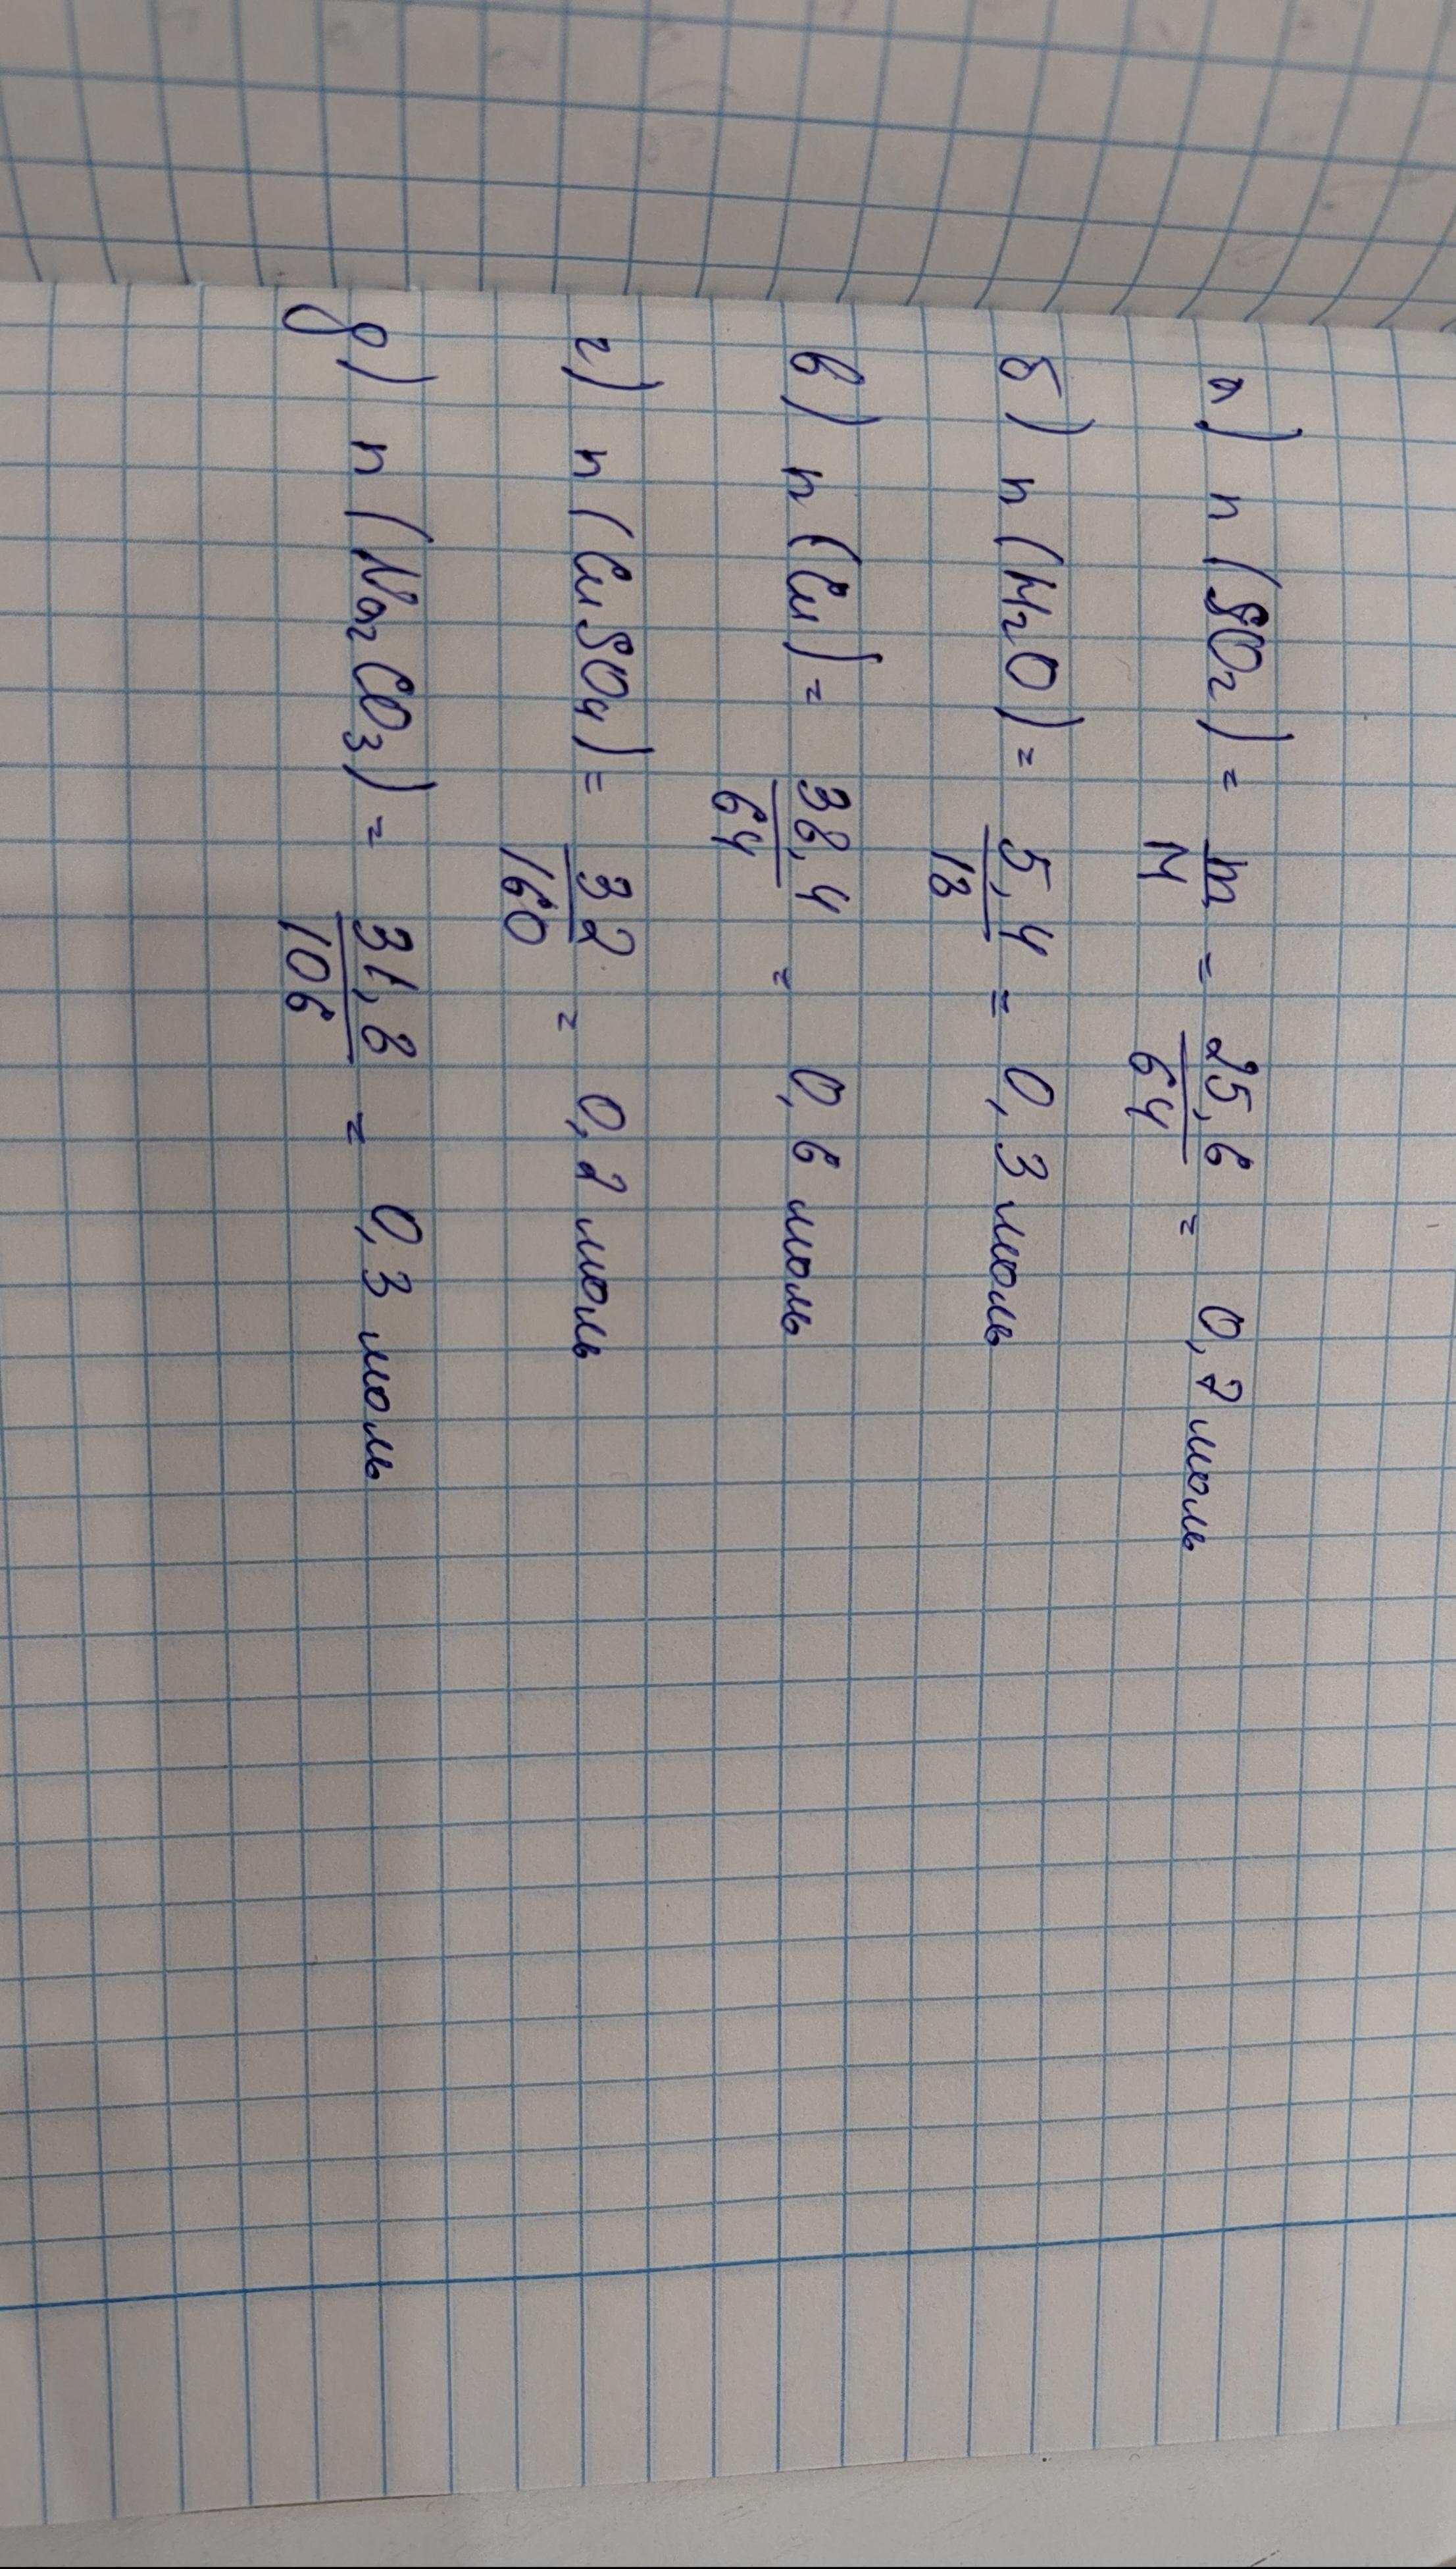 а) n (SO2) = m/M = 25,6/64 = 0,7 моль
б) n (H2O) = 5,4/18 = 0,3 моль
в) n (Cu) = 38,4/64 = 0,6 моль
г) n (CuSO4) = 32/160 = 0,2 моль
д) n (Na2CO3) = 31,8/106 = 0,3 моль